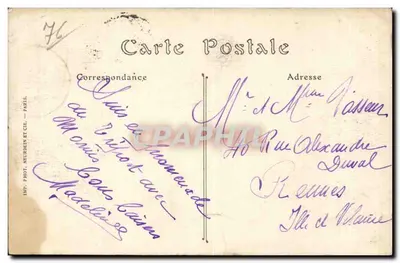 76
Carte Postale
Correspondance
Adresse
Suis en promenade
au Tréport avec
Marius
Bons baisers
Madeleine
Mr & Mme Vasseur
40 Rue Alexandre
Duval
Rennes
Ille et Vilaine
CPAPHIL
IMP. PHOT. NEURDEIN ET CIE. — PARIS.